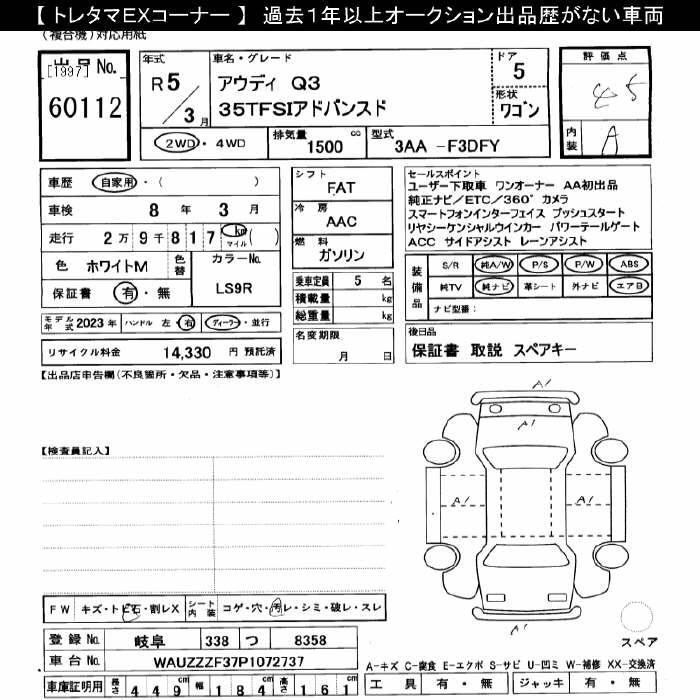 【 トレタマEXコーナー 】 過去1年以上オークション出品歴がない車両
(複合機)対応用紙
[1997]
出品No.
60112
年式
R 5 / 3 月
車名・グレード
アウディ Q3
35TFSIアドバンスド
ドア
5
形状
ワゴン
2WD・4WD
排気量
1500 cc
型式
3AA -F3DFY
評価点
4.5
内装
A
車歴 自家用・( )
車検 8 年 3 月
走行 2万9千817 km マイル ( )
色 ホワイトM 色替
カラーNo.
LS9R
保証書 有・無
モデル年式 2023年 ハンドル 左・右 ディーラー・並行
リサイクル料金 14,330 円 預託済
シフト
FAT
冷房
AAC
燃料
ガソリン
乗車定員 5 名
積載量 kg
総重量 kg
名変期限
月 日
セールスポイント
ユーザー下取車 ワンオーナー AA初出品
純正ナビ/ETC/360°カメラ
スマートフォンインターフェイス プッシュスタート
リヤシーケンシャルウインカー パワーテールゲート
ACC サイドアシスト レーンアシスト
装備品
S/R 純A/W P/S P/W ABS
純TV 純ナビ 革シート 外ナビ エアB
ナビ型番:
後日品
保証書 取説 スペアキー
【出品店申告欄(不良箇所・欠品・注意事項等)】
【検査員記入】
A1
A1
A1
A1
A1
スペア
FW キズ・トビ石・割レX シート内装 コゲ・穴・汚レ・シミ・破レ・スレ
登録No. 岐阜 338 つ 8358
車台No. WAUZZZF37P1072737
車庫証明用 長さ 449cm 幅 184cm 高さ 161cm
A-キズ C-腐食 E-エクボ S-サビ U-凹ミ W-補修 XX-交換済
工具 有・無 ジャッキ 有・無